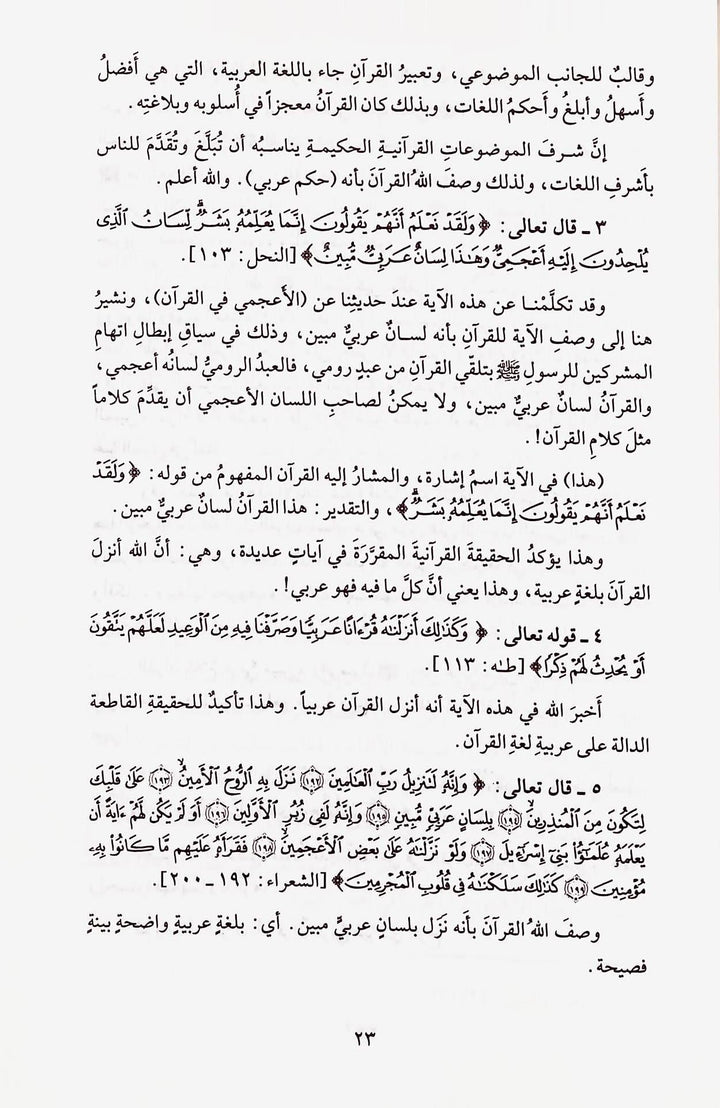 وقالبٌ للجانب الموضوعي، وتعبيرُ القرآنِ جاء باللغة العربية، التي هي أَفضلُ
وأَسهلُ وأبلغُ وأَحكمُ اللغات، وبذلك كان القرآنُ معجزاً في أُسلوبه وبلاغتِه.
إنَّ شرفَ الموضوعاتِ القرآنيةِ الحكيمةِ يناسبُه أن تُبَلَّغَ وتُقَدَّمَ للناس
بأَشرفِ اللغات، ولذلك وصفَ اللهُ القرآنَ بأنه (حكم عربي). والله أعلم.
٣ ـ قال تعالى: ﴿ وَلَقَدْ نَعْلَمُ أَنَّهُمْ يَقُولُونَ إِنَّمَا يُعَلِّمُهُ بَشَرٌ ۗ لِّسَانُ ٱلَّذِى
يُلْحِدُونَ إِلَيْهِ أَعْجَمِىٌّ وَهَٰذَا لِسَانٌ عَرَبِىٌّ مُّبِينٌ﴾ [النحل: ١٠٣].
وقد تكلَّمْنا عن هذه الآية عندَ حديثِنا عن (الأَعجمي في القرآن)، ونشيرُ
هنا إلى وصفِ الآية للقرآنِ بأنه لسانٌ عربيٌّ مبين، وذلك في سياقِ إبطالِ اتهامِ
المشركين للرسولِ ﷺ بتلقّي القرآنِ من عبدٍ رومي، فالعبدُ الروميُّ لسانُه أعجمي،
والقرآنُ لسانٌ عربيٌّ مبين، ولا يمكنُ لصاحبِ اللسان الأعجمي أن يقدِّمَ كلاماً
مثلَ كلامِ القرآن!.
(هذا) في الآية اسمُ إشارة، والمشارُ إليه القرآن المفهومُ من قوله: ﴿ وَلَقَدْ
نَعْلَمُ أَنَّهُمْ يَقُولُونَ إِنَّمَا يُعَلِّمُهُ بَشَرٌ ۗ﴾، والتقدير: هذا القرآنُ لسانٌ عربيٌّ مبين.
وهذا يؤكدُ الحقيقةَ القرآنيةَ المقرَّرَةَ في آياتٍ عديدة، وهي: أنَّ الله أنزلَ
القرآنَ بلغةٍ عربية، وهذا يعني أنَّ كلَّ ما فيه فهو عربي!.
٤ ـ قوله تعالى: ﴿ وَكَذَٰلِكَ أَنزَلْنَٰهُ قُرْءَانًا عَرَبِيًّا وَصَرَّفْنَا فِيهِ مِنَ ٱلْوَعِيدِ لَعَلَّهُمْ يَتَّقُونَ
أَوْ يُحْدِثُ لَهُمْ ذِكْرًا﴾ [طه: ١١٣].
أَخبرَ الله في هذه الآية أنه أنزل القرآن عربياً. وهذا تأكيدٌ للحقيقةِ القاطعة
الدالة على عربيةِ لغةِ القرآن.
٥ ـ قال تعالى: ﴿ وَإِنَّهُۥ لَتَنزِيلُ رَبِّ ٱلْعَٰلَمِينَ ۝١٩٢ نَزَلَ بِهِ ٱلرُّوحُ ٱلْأَمِينُ ۝١٩٣ عَلَىٰ قَلْبِكَ
لِتَكُونَ مِنَ ٱلْمُنذِرِينَ ۝١٩٤ بِلِسَانٍ عَرَبِىٍّ مُّبِينٍ ۝١٩٥ وَإِنَّهُۥ لَفِى زُبُرِ ٱلْأَوَّلِينَ ۝١٩٦ أَوَلَمْ يَكُن لَّهُمْ ءَايَةً أَن
يَعْلَمَهُۥ عُلَمَٰٓؤُا۟ بَنِىٓ إِسْرَٰٓءِيلَ ۝١٩٧ وَلَوْ نَزَّلْنَٰهُ عَلَىٰ بَعْضِ ٱلْأَعْجَمِينَ ۝١٩٨ فَقَرَأَهُۥ عَلَيْهِم مَّا كَانُوا۟ بِهِۦ
مُؤْمِنِينَ ۝١٩٩ كَذَٰلِكَ سَلَكْنَٰهُ فِى قُلُوبِ ٱلْمُجْرِمِينَ﴾ [الشعراء: ١٩٢ ـ ٢٠٠].
وصفَ اللهُ القرآنَ بأنه نزَل بلسان عربيٍّ مبين. أي: بلغةٍ عربيةٍ واضحةٍ بينةٍ
فصيحة.
٢٣